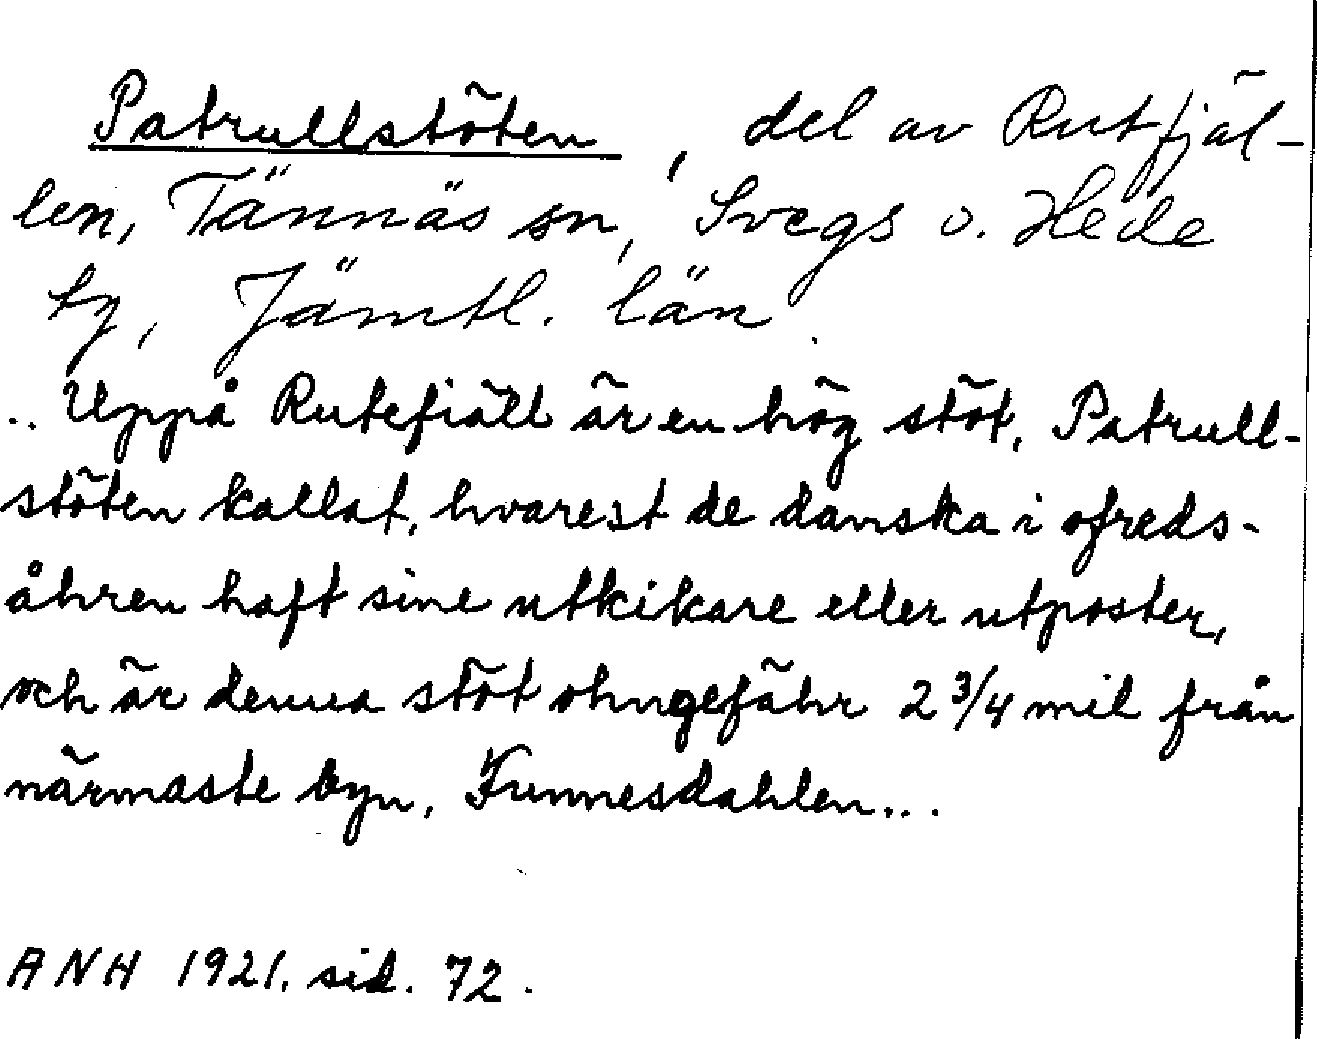 Patrullstöten, del av Rutfjäl-
len, Tännäs sn, Svegs o. Hede
tg, Jämtl. län.
.. Uppå Rutefiäll är en hög stöt, Patrull-
stöten kallat, hvarest de danska i ofreds-
åhren haft sine utkikare eller utposter,
och är denna stöt ohngefähr 2 3/4 mil från
närmaste byn, Funnesdahlen...
ANH 1921. sid. 72.